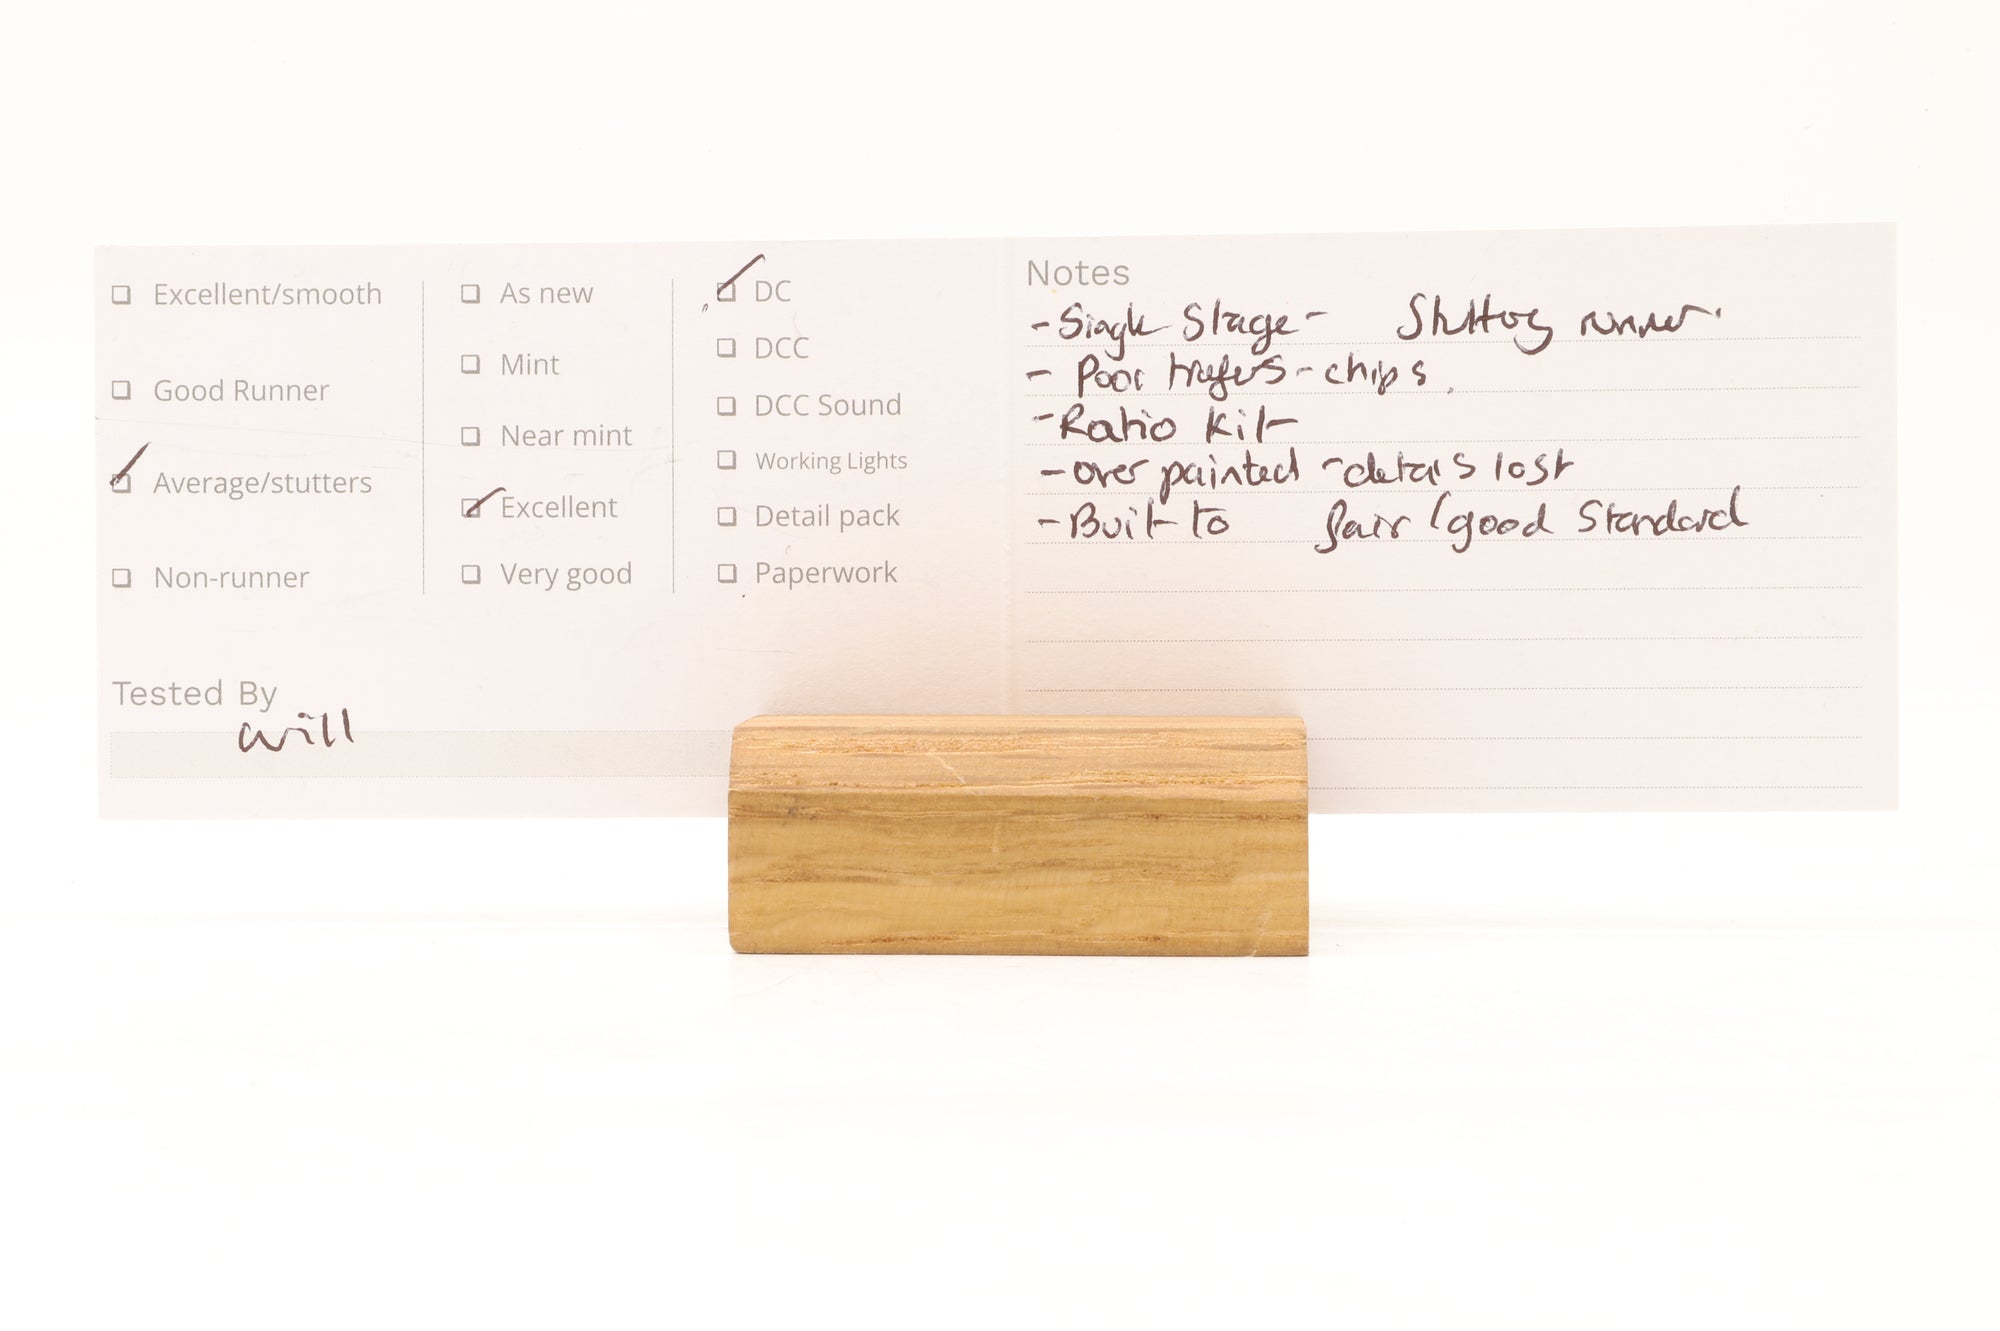 Excellent/smooth
Good Runner
Average/stutters
Non-runner
As new
Mint
Near mint
Excellent
Very good
DC
DCC
DCC Sound
Working Lights
Detail pack
Paperwork
Tested By
will
Notes
- Single Stage - runner.
- Poor - chips.
- Ratio Kit
- over painted - details lost
- Built to fair / good Standard